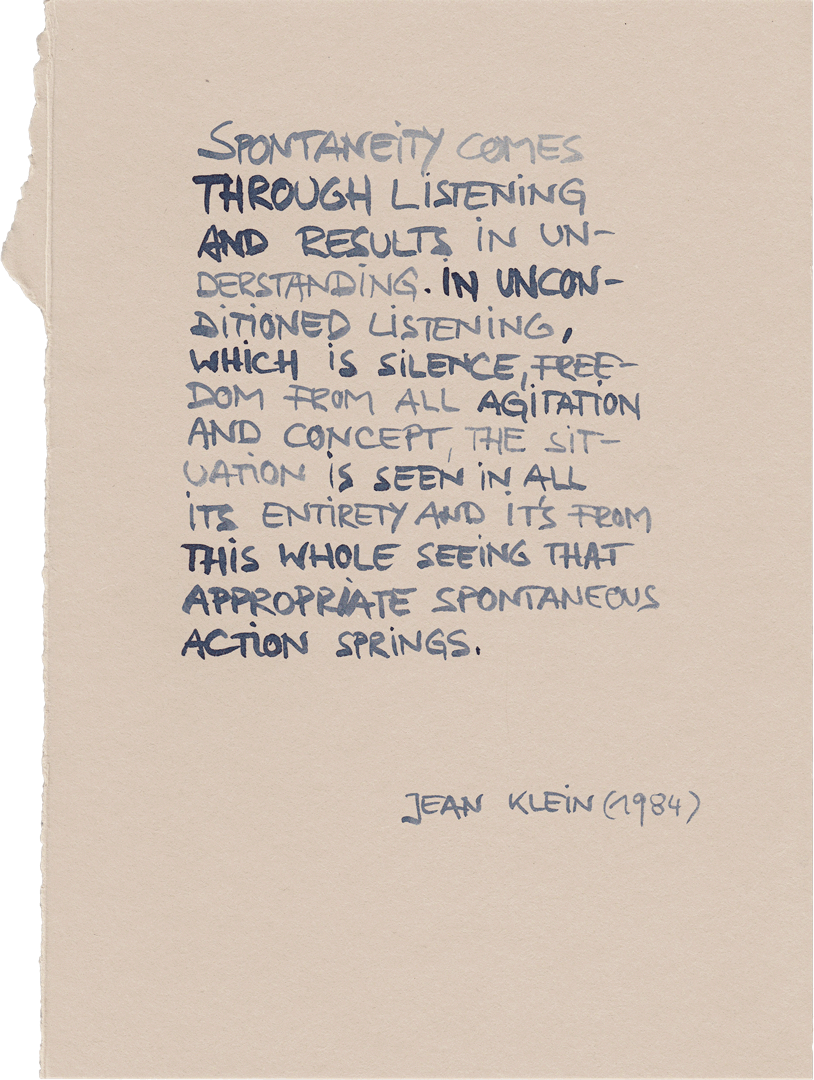 SPONTANEITY COMES
THROUGH LISTENING
AND RESULTS IN UN-
DERSTANDING. IN UNCON-
DITIONED LISTENING,
WHICH IS SILENCE, FREE-
DOM FROM ALL AGITATION
AND CONCEPT, THE SIT-
UATION IS SEEN IN ALL
ITS ENTIRETY AND IT'S FROM
THIS WHOLE SEEING THAT
APPROPRIATE SPONTANEOUS
ACTION SPRINGS.
JEAN KLEIN (1984)